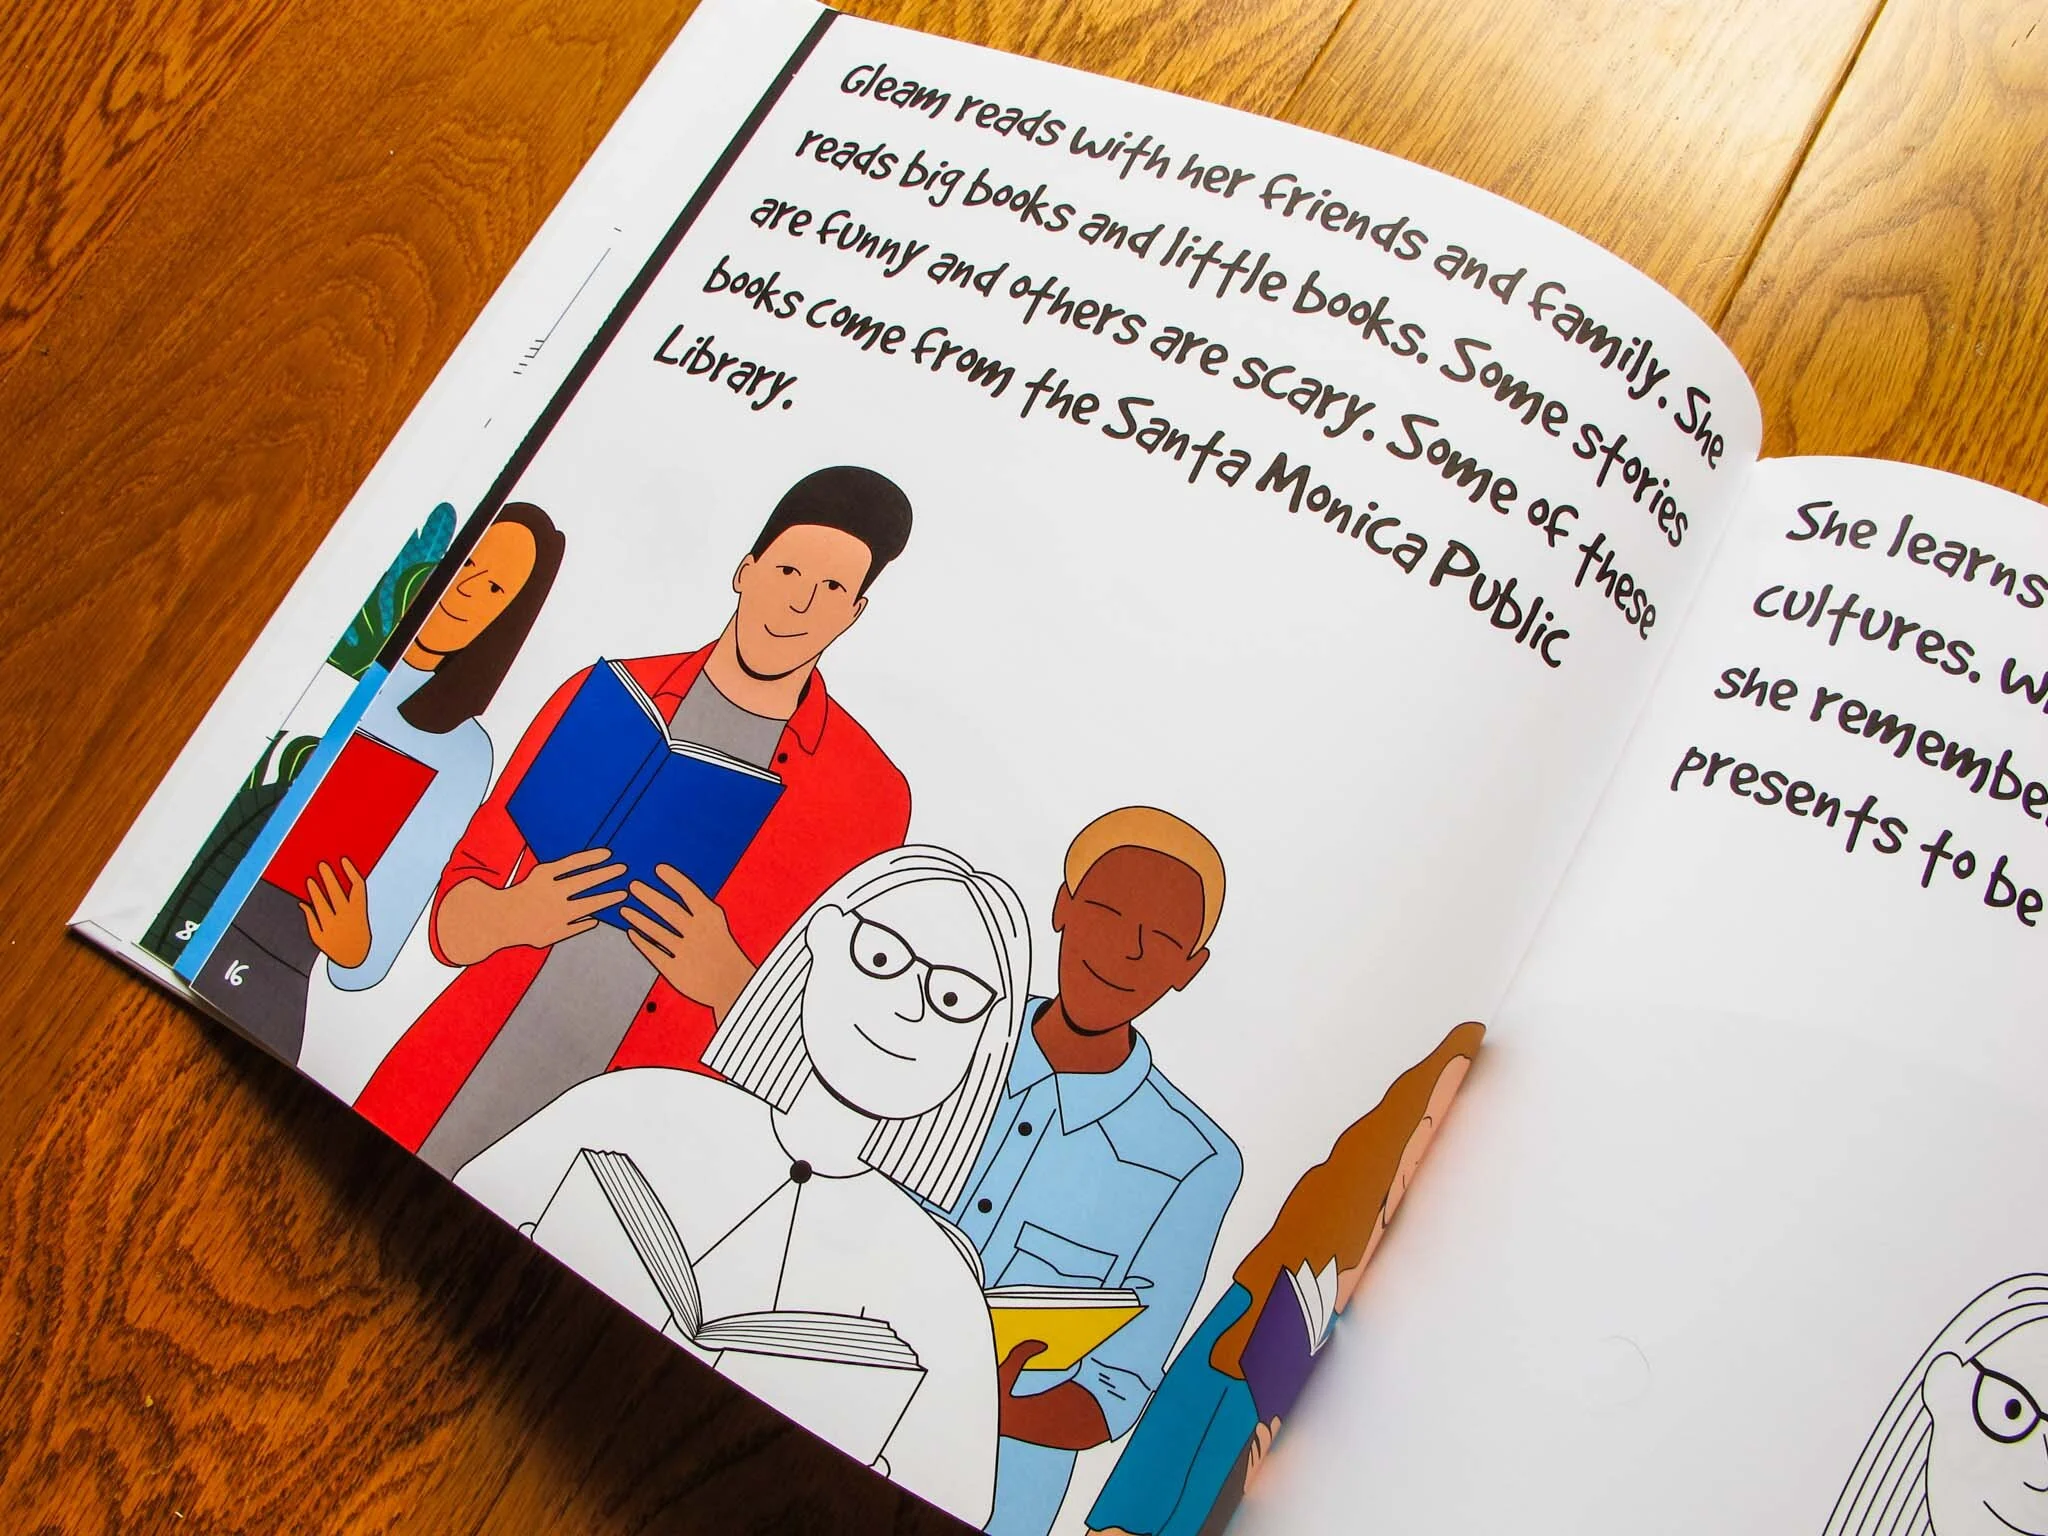 Gleam reads with her friends and family. She
reads big books and little books. Some stories
are funny and others are scary. Some of these
books come from the Santa Monica Public
Library.
8
16
She learns
cultures.
she
presents to be